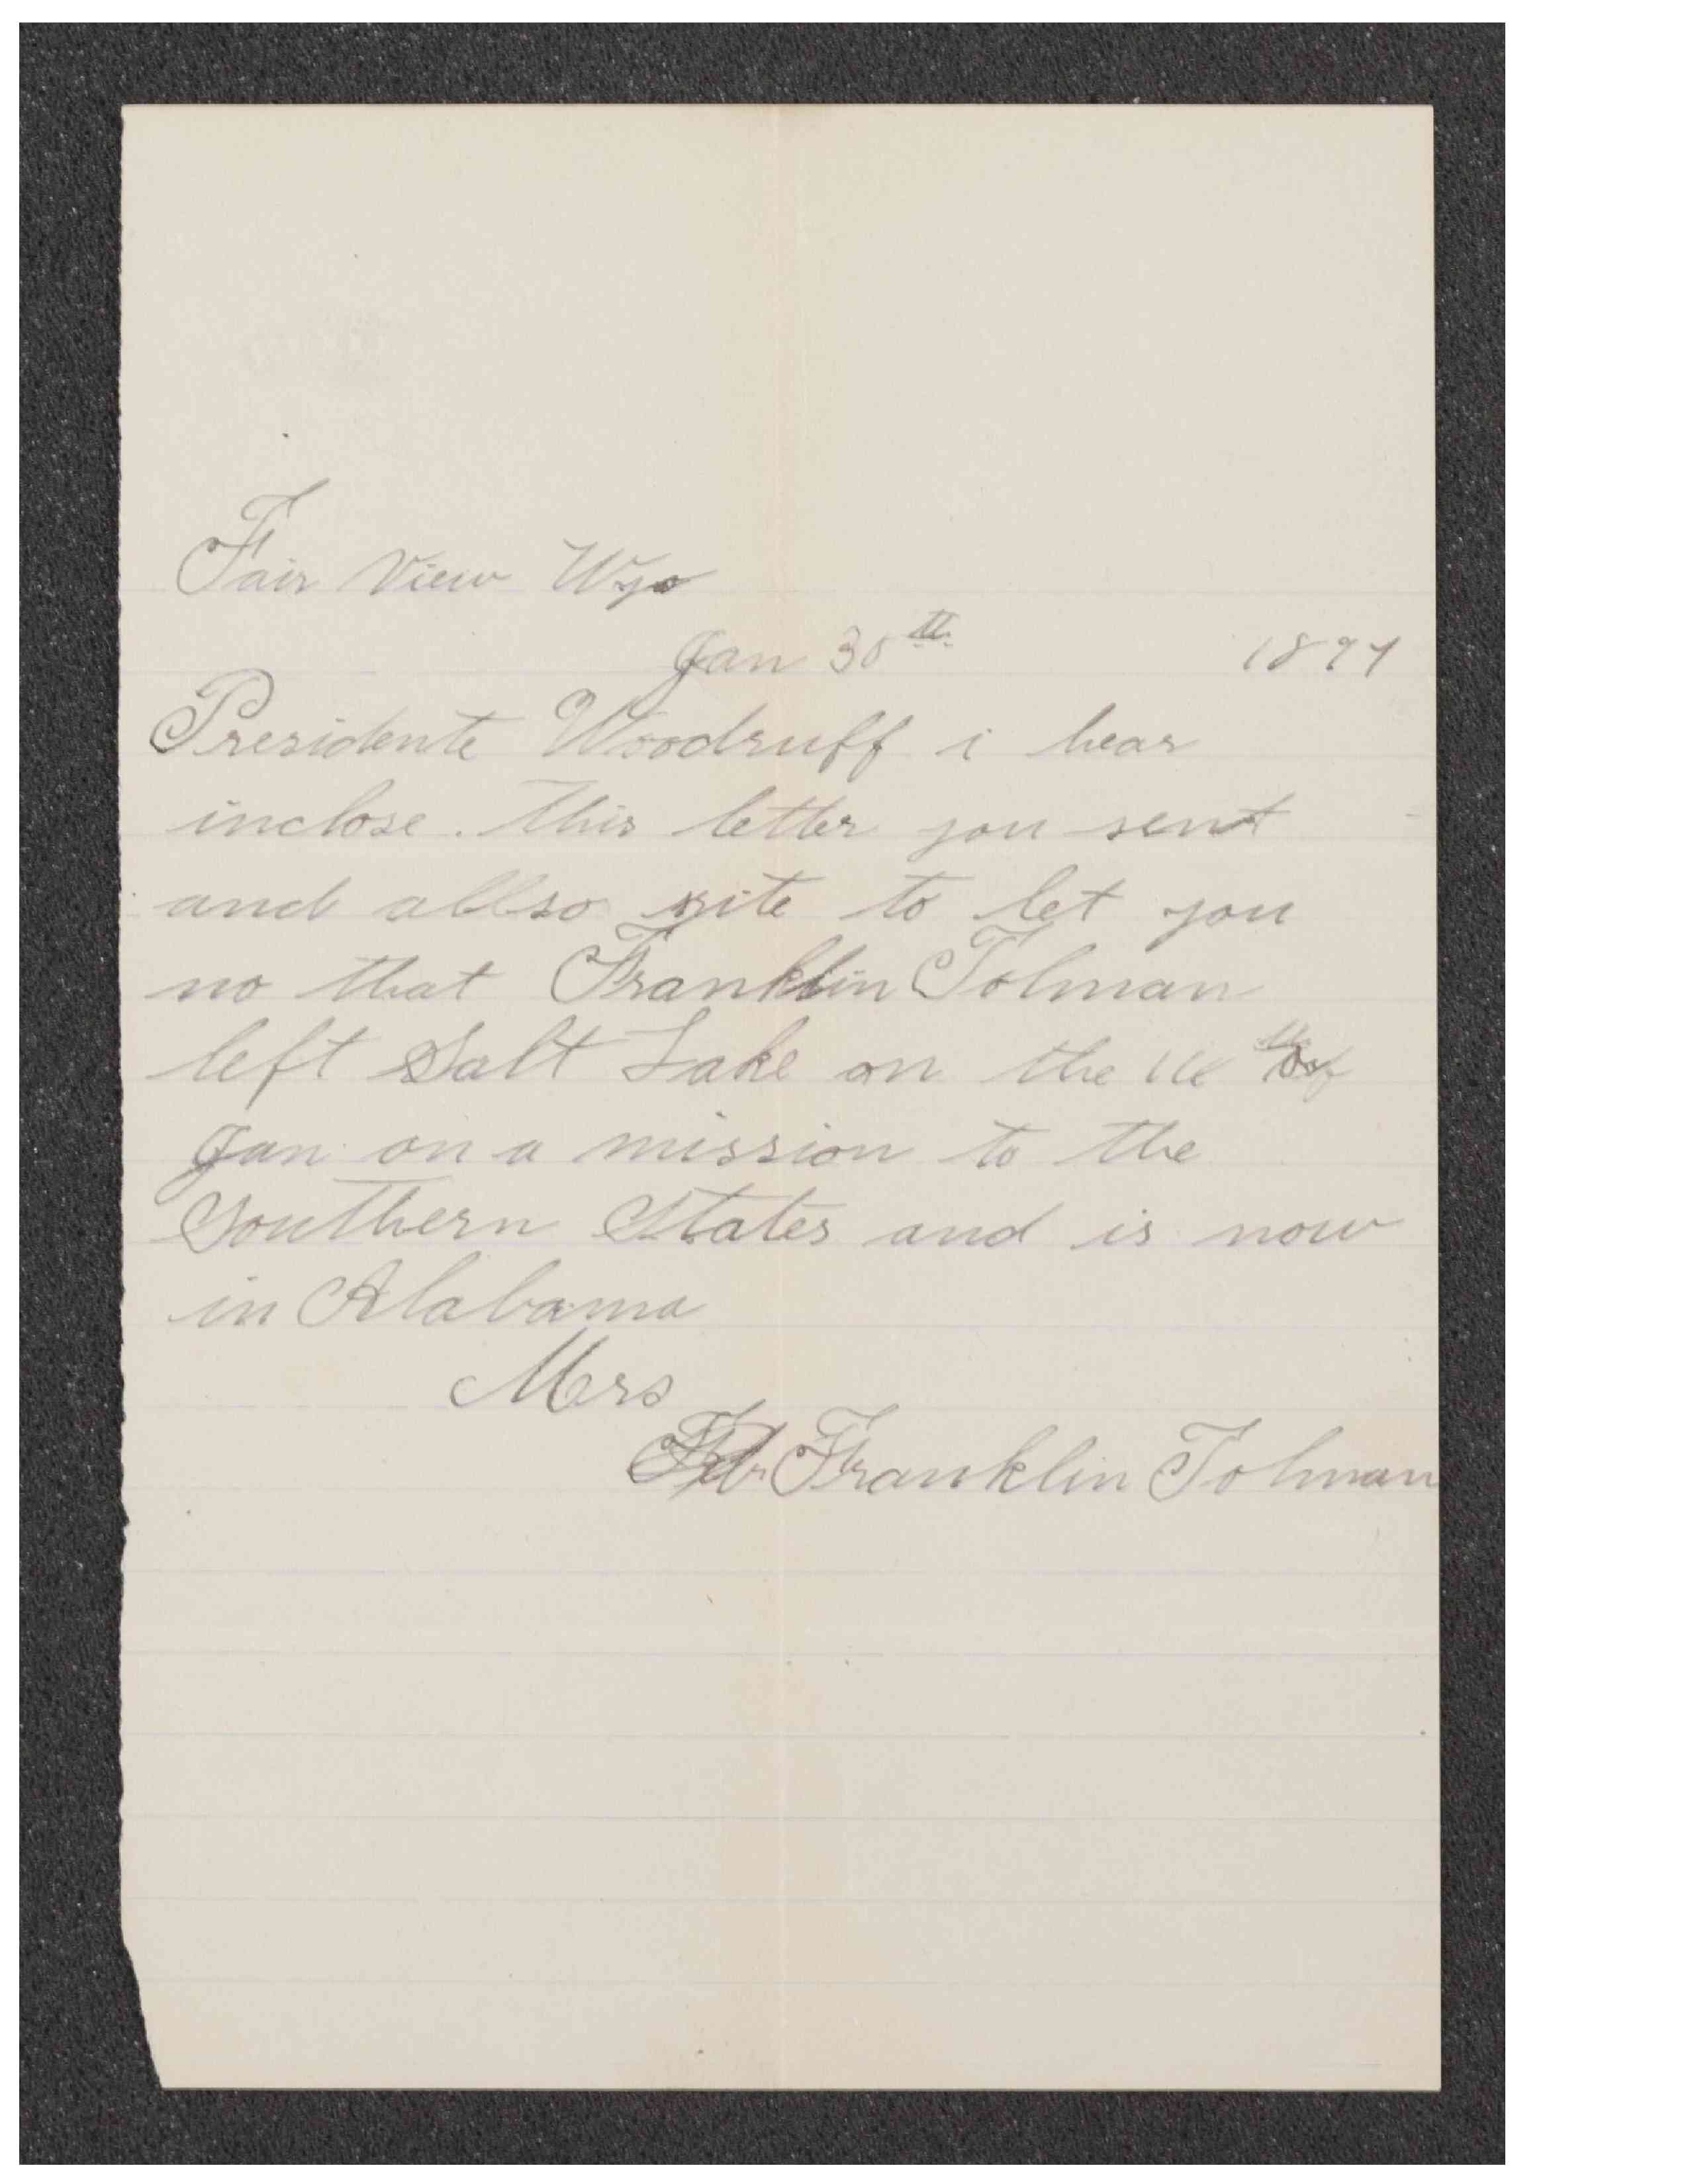 Fair View Wyo
Jan 30th 1897
Presidente Woodruff i hear
inclose. this letter you sent
and allso rite to let you
no that Franklin Tolman
left Salt Lake on the 16 th of
Jan on a mission to the
Southern States and is now
in Alabama
Mers
Franklin Tolman